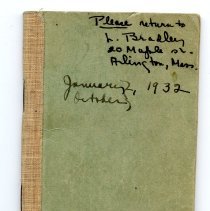 Please return to
L. Bradley
20 Maple St.
Arlington, Mass.
January, 1932
October